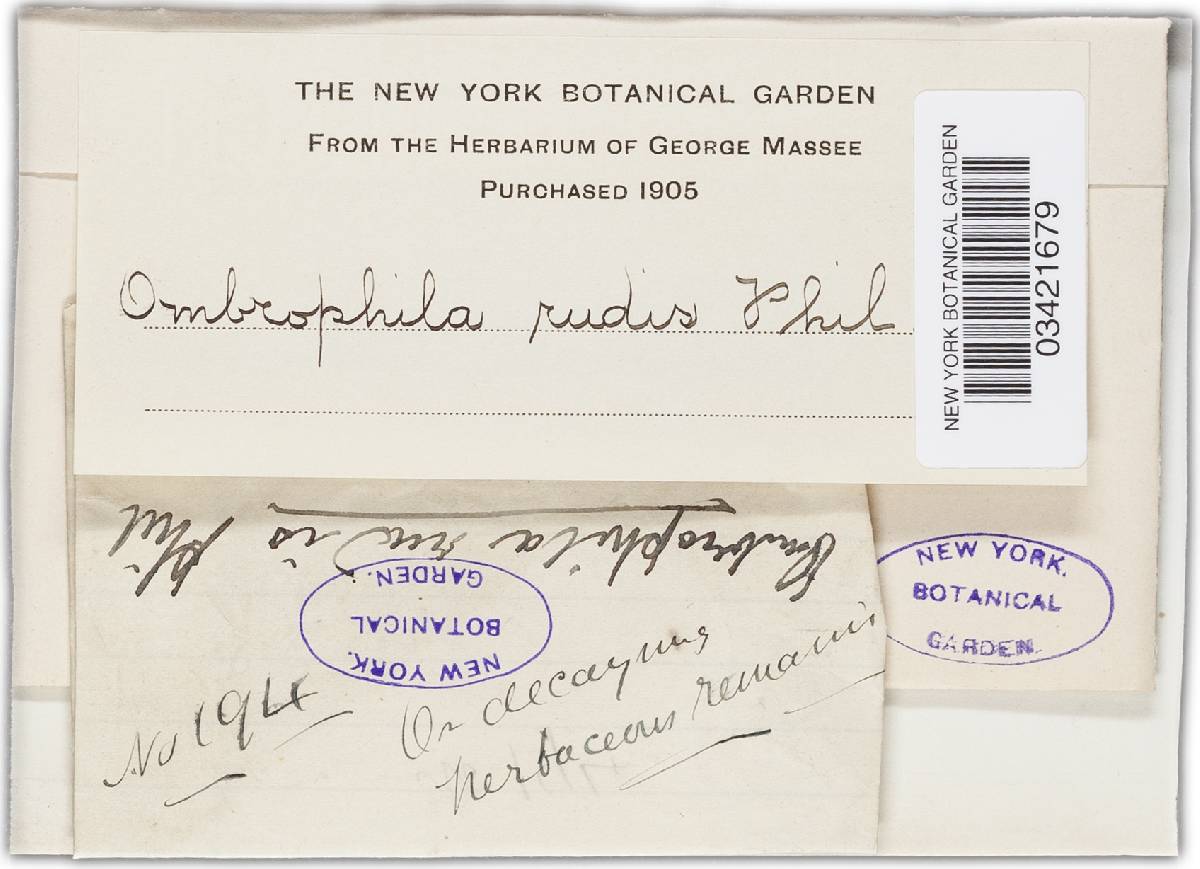 THE NEW YORK BOTANICAL GARDEN
FROM THE HERBARIUM OF GEORGE MASSEE
PURCHASED 1905
Ombrophila rudis Phil
NEW YORK BOTANICAL GARDEN
03421679
Ombrophila rudis Phil
NEW YORK.
BOTANICAL
GARDEN.
NEW YORK.
BOTANICAL
GARDEN.
No 194
On decaying
herbaceous remains